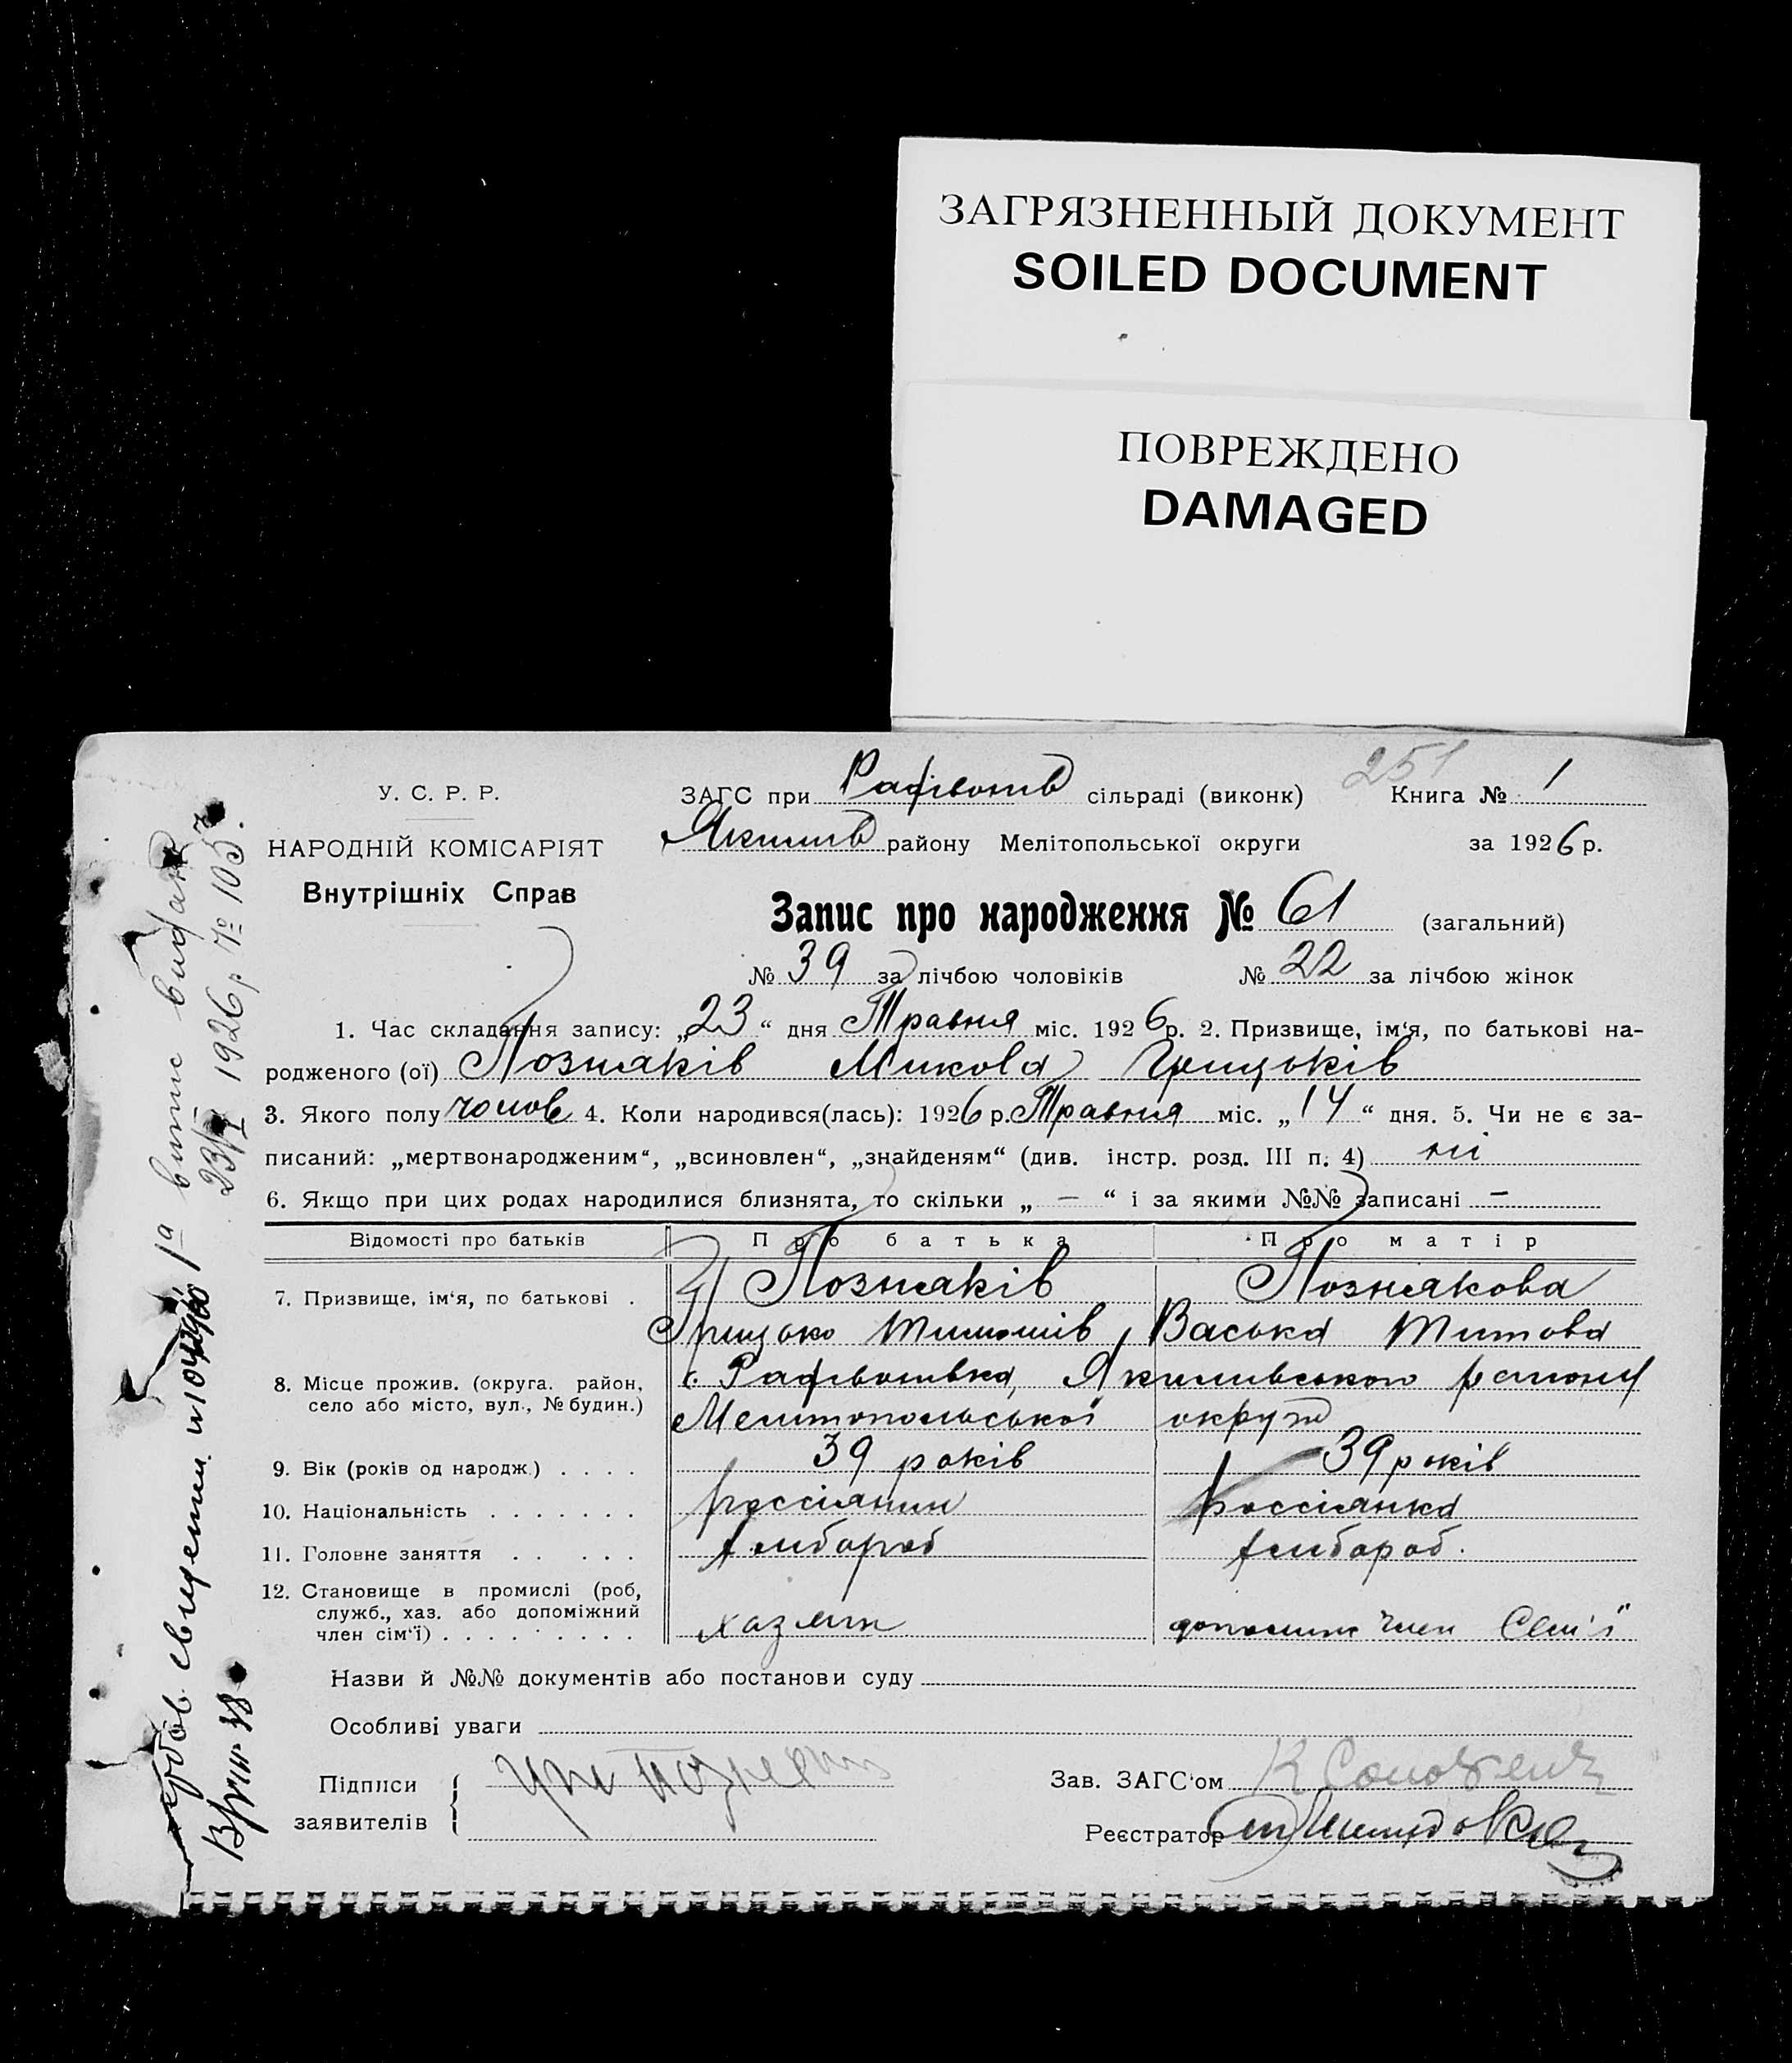 ЗАГРЯЗНЕННЫЙ ДОКУМЕНТ
SOILED DOCUMENT
ПОВРЕЖДЕНО
DAMAGED
251
У. С. Р. Р.
НАРОДНІЙ КОМІСАРІЯТ
Внутрішніх Справ
ЗАГС при сільраді (виконк) Книга № 1
Якимів району Мелітопольської округи за 1926 р.
Запис про народження № 61 (загальний)
№ 39 за лічбою чоловіків № 22 за лічбою жінок
1. Час складання запису: „23“ дня Травня міс. 1926 р. 2. Призвище, ім‘я, по батькові на-
родженого (ої) Позняків Микола Грицьків
3. Якого полу чолов 4. Коли народився(лась): 1926 р. Травня міс. „14“ дня. 5. Чи не є за-
писаний: „мертвонародженим“, „всиновлен“, „знайденям“ (див. інстр. розд. III п. 4) ні
6. Якщо при цих родах народилися близнята, то скільки „ — “ і за якими №№ записані —
Відомості про батьків Про батька Про матір
7. Призвище, ім‘я, по батькові . Позняків Познякова
Грицько Тимошів Васька Титова
8. Місце прожив. (округа. район,
село або місто, вул., № будин.)
с. Якимівського району
Мелітопольської округи
9. Вік (років од народж.) . . . . 39 років 39 років
10. Національність . . . . . . . россіянин россіянка
11. Головне заняття . . . . . хлібороб хлібороб.
12. Становище в промислі (роб,
служб., хаз. або допоміжний
член сім‘ї) . . . . . . . . . хазяин допоміж член Сем'ї
Назви й №№ документів або постанови суду
Особливі уваги
Підписи
заявителів
Зав. ЗАГС‘ом
Реєстратор
1а випис видано
23/V 1926 р № 105